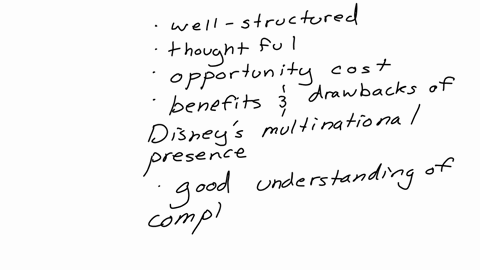 · well-structured
· thoughtful
· opportunity cost
· benefits & drawbacks of
Disney's multinational
presence
· good understanding of
compl